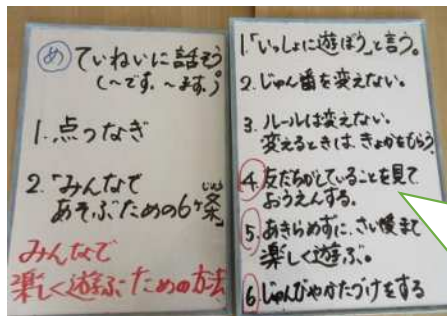 め ていねいに話そう
(〜です。〜ます。)
1. 点つなぎ
2. 「みんなで
あそぶための6ヶ条」
じょう
みんなで
楽しく遊ぶための方法
1. 「いっしょに遊ぼう」と言う。
2. じゅん番を変えない。
3. ルールは変えない。
変えるときは、きょかをもらう。
4. 友だちがしていることを見て
おうえんする。
5. あきらめずに、さい後まで
楽しく遊ぶ。
6. じゅんびやかたづけをする